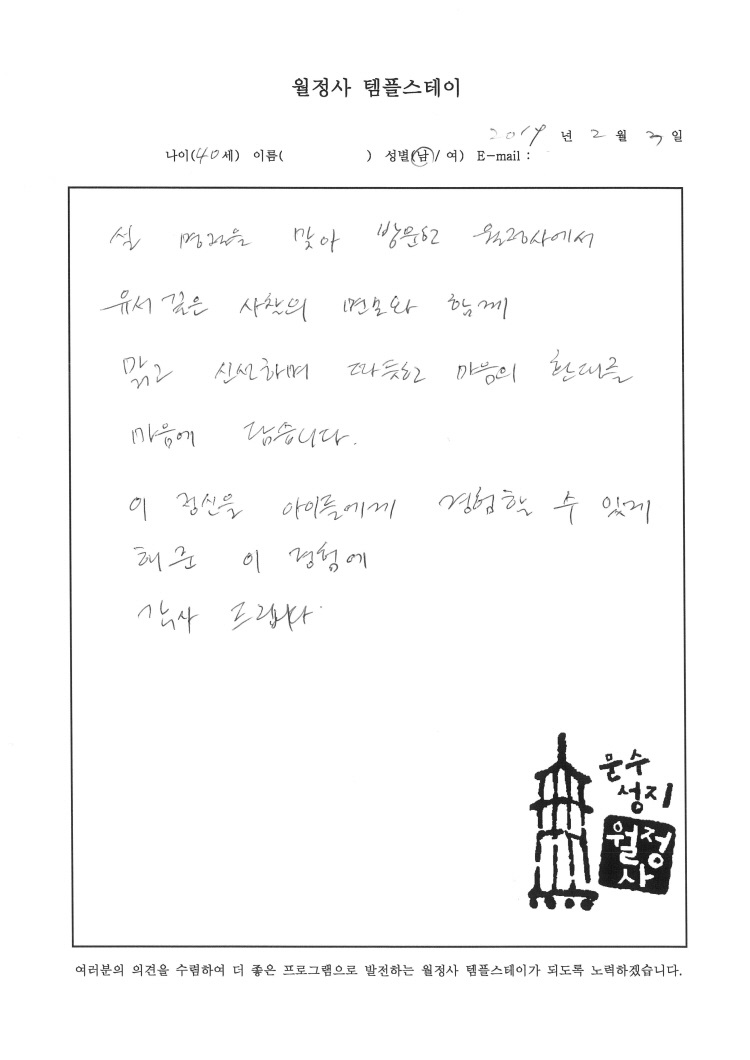 월정사 템플스테이
2019 년 2 월 3 일
나이(40세) 이름( ) 성별(남/ 여) E-mail :
설 명절을 맞아 방문한 월정사에서
유서 깊은 사찰의 면모와 함께
맑고 신선하며 따듯한 마음의 환대를
마음에 담습니다.
이 정신을 아이들에게 경험할 수 있게
해준 이 경험에
감사 드립니다.
문수
성지
월정
사
여러분의 의견을 수렴하여 더 좋은 프로그램으로 발전하는 월정사 템플스테이가 되도록 노력하겠습니다.